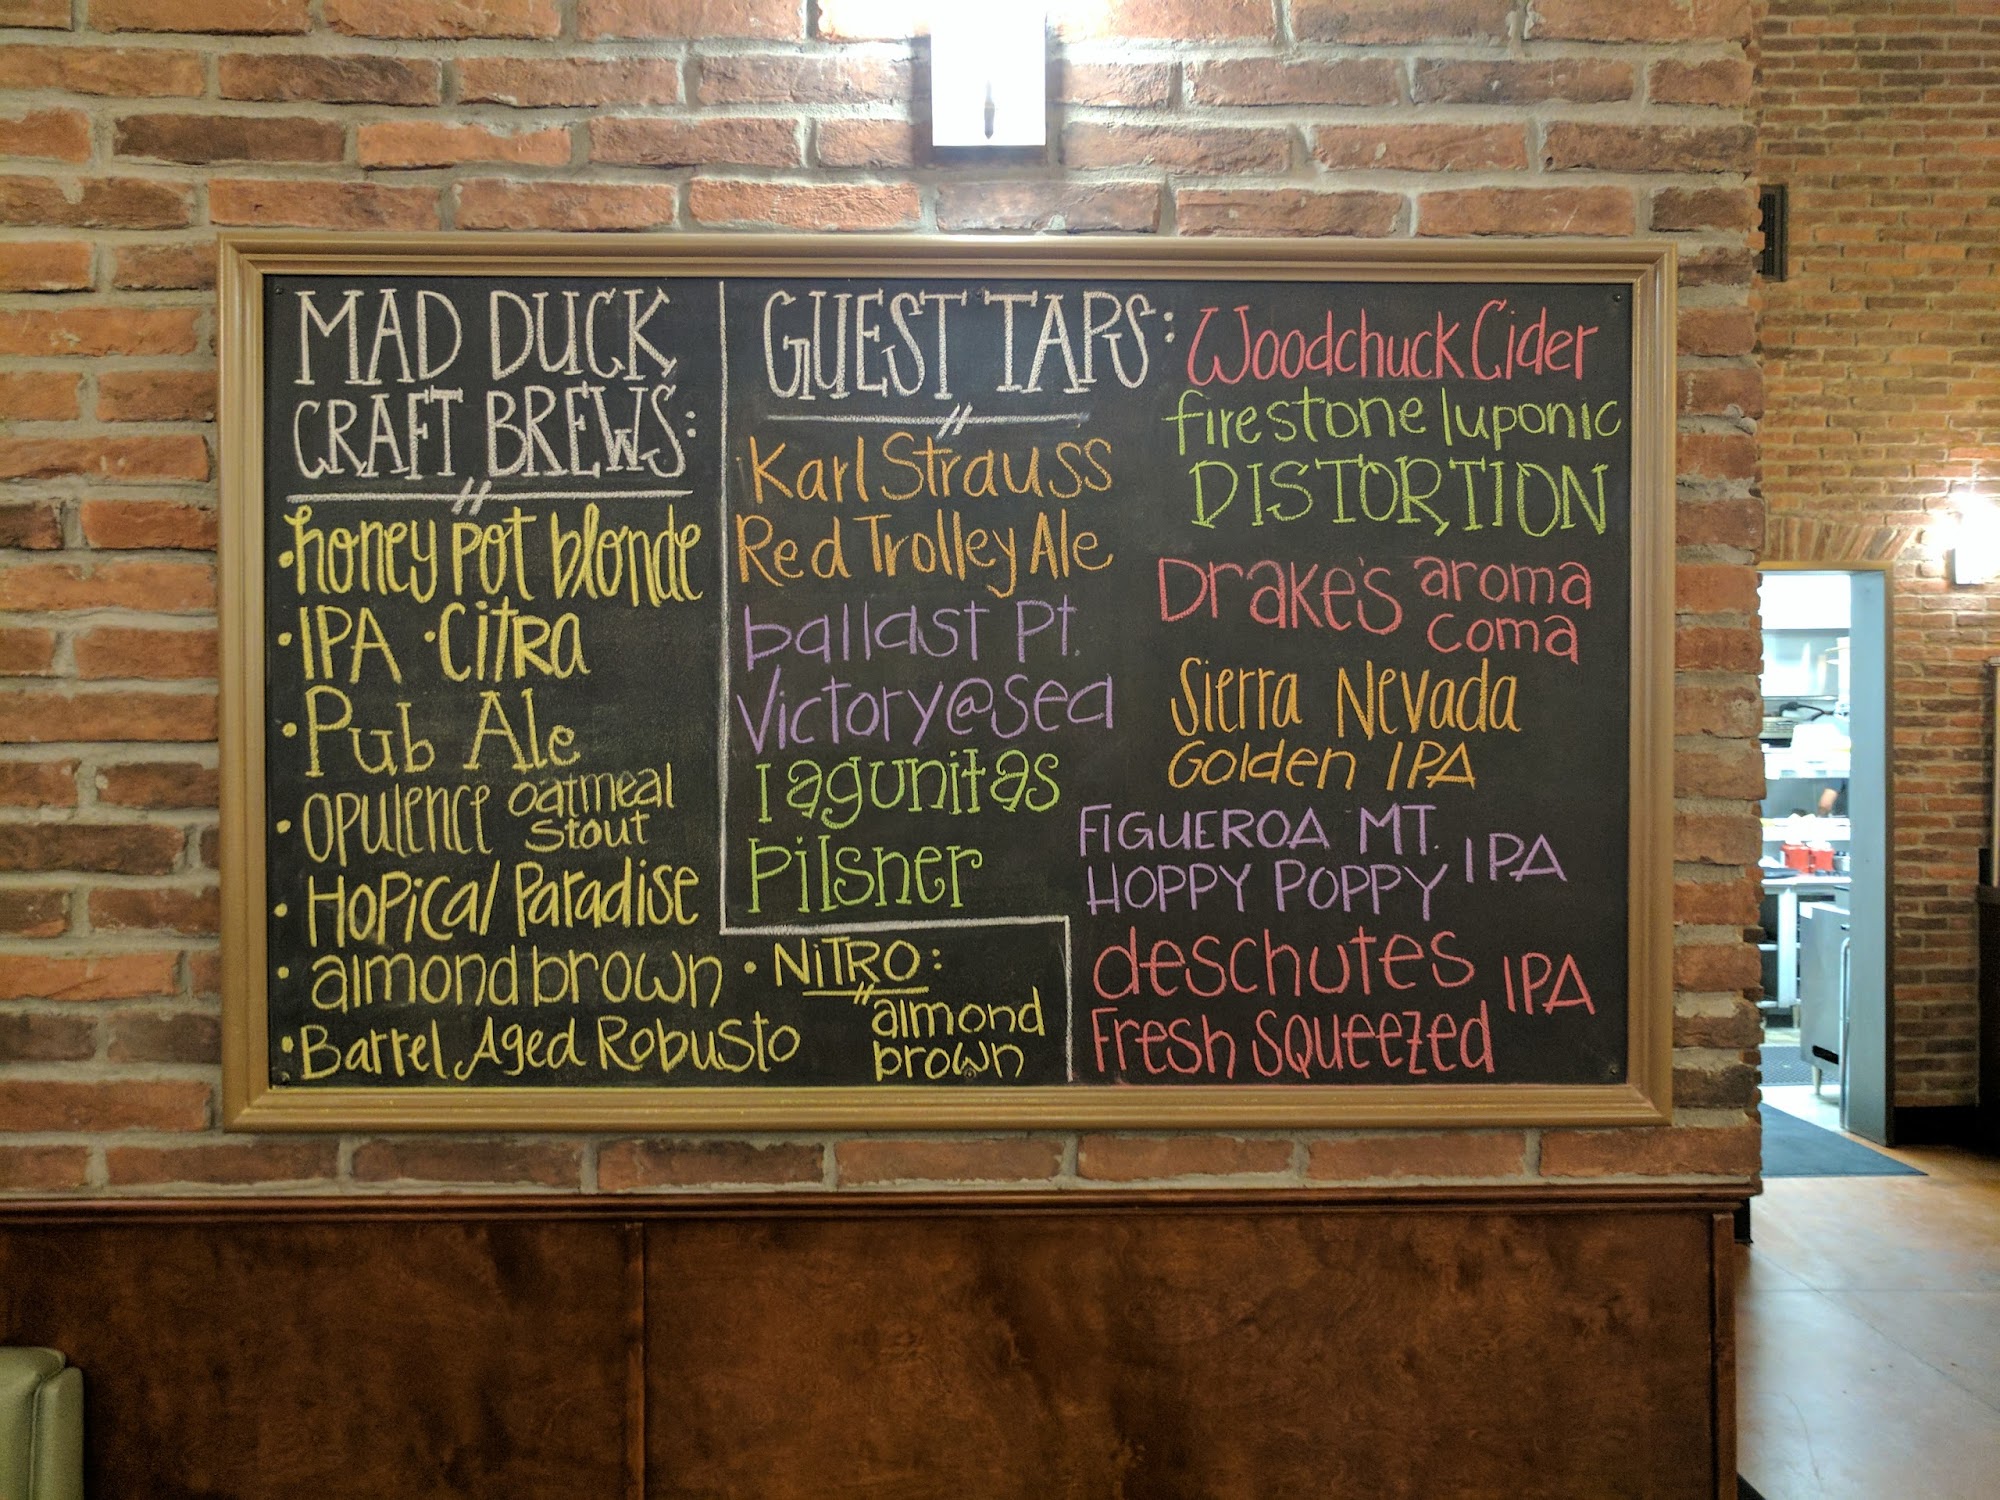 MAD DUCK
CRAFT BREWS:
• honey pot blonde
• IPA • Citra
• Pub Ale
• Opulence oatmeal
stout
• Hopical Paradise
• almond brown
• Barrel Aged Robusto
• NiTRO:
almond
brown
GUEST TAPS:
Karl Strauss
Red Trolley Ale
ballast Pt.
Victory@Sea
lagunitas
Pilsner
Woodchuck Cider
firestone luponic
DISTORTION
DRAKE'S aroma
coma
Sierra Nevada
Golden IPA
FIGUEROA MT.
HOPPY POPPY IPA
deschutes
Fresh Squeezed IPA